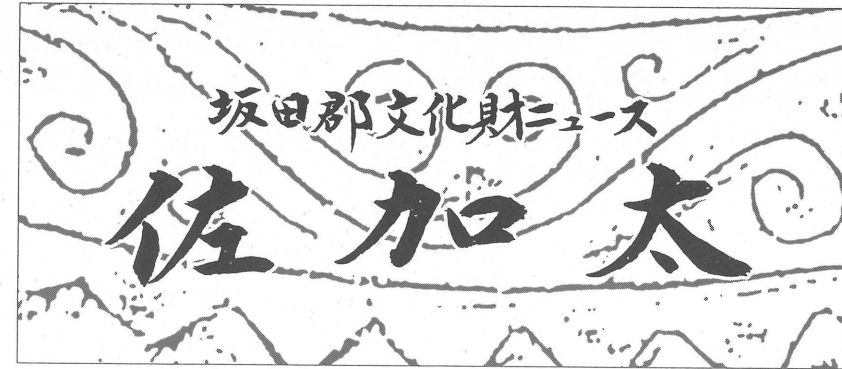 坂田郡文化財ニュース
佐加太